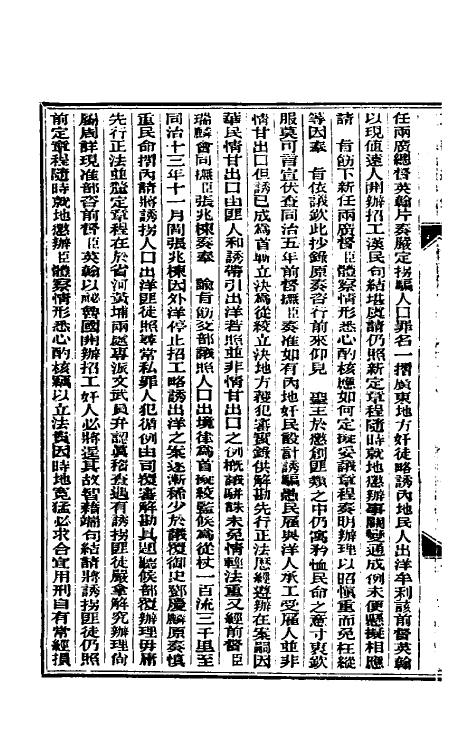 任兩廣總督英翰片奏嚴定拐騙人口罪名一摺廣東地方奸徒略誘內地民人出洋牟利該前督英翰
以現值遠人開辦招工漢民句結堪虞請仍照新定章程隨時就地懲辦事關變通成例未便懸擬相應
請 旨飭下新任兩廣督臣體察情形悉心酌核應如何定擬妥議章程奏明辦理以昭慎重而免枉縱
等因奉 旨依議欽此抄錄原奏咨行前來仰見 聖王於懲創匪類之中仍寓矜恤民命之意寸衷欽
服莫可言宣伏查同治五年前督撫臣奏准如有內地奸民設計誘騙愚民雇與洋人承工受雇人並非
情甘出口但誘已成為首斬立決為從絞立決地方獲犯審實錄供解勘先行正法歷經遵辦在案嗣因
華民情甘出口由匪人和誘帶引出洋若照並非情甘出口之例概議駢誅未免情輕法重又經前督臣
瑞麟會同撫臣張兆棟奏奉 諭旨飭交部議照人口出境律為首擬絞監候為從杖一百流三千里至
同治十三年十一月間張兆棟因外洋停止招工略誘出洋之案逐漸稀少於議覆御史鄧慶麟原奏慎
重民命摺內請將誘拐人口出洋匪徒照尋常私罪人犯循例由司覆審解勘具題聽候部覆辦理毋庸
先行正法並籌定章程在於省河黃埔兩處專派文武員弁認真稽查遇有誘拐匪徒嚴拿解究辦理尚
屬周詳現准部咨前督臣英翰以祕魯國開辦招工奸人必將逞其故智藉端句結請將誘拐匪徒仍照
前定章程隨時就地懲辦臣體察情形悉心酌核竊以立法貴因時地寬猛必求合宜用刑自有常經損